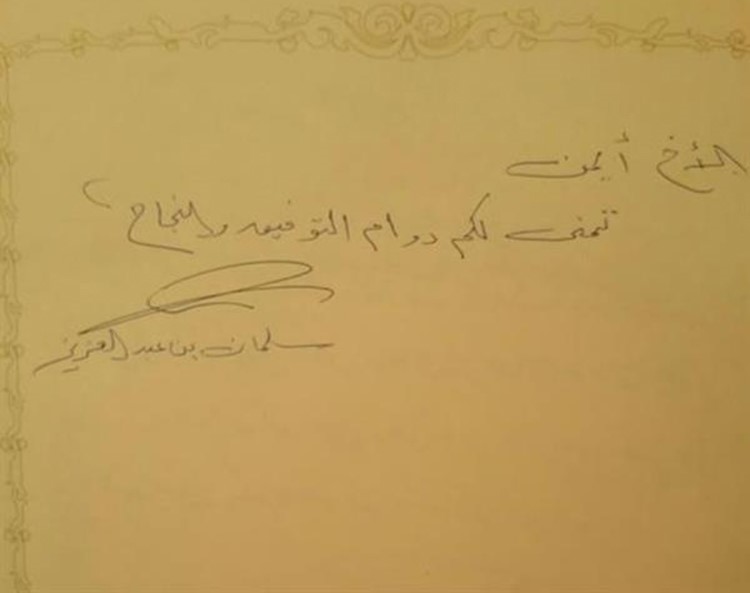 الأخ أيمن
نتمنى لكم دوام التوفيق والنجاح،
سلمان بن عبد العزيز